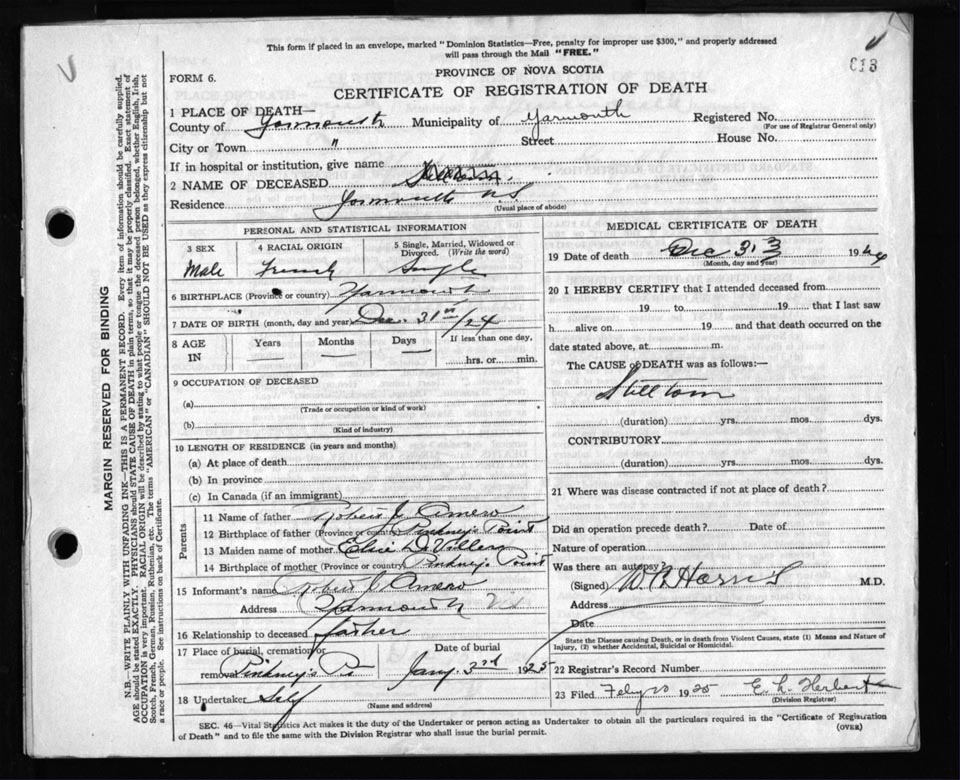 This form if placed in an envelope, marked "Dominion Statistics—Free, penalty for improper use $300," and properly addressed
will pass through the Mail "FREE."
PROVINCE OF NOVA SCOTIA
FORM 6.
CERTIFICATE OF REGISTRATION OF DEATH
1 PLACE OF DEATH—
County of Yarmouth Municipality of Yarmouth Registered No.
(For use of Registrar General only)
City or Town " Street House No.
If in hospital or institution, give name
2 NAME OF DECEASED
Residence Yarmouth N.S
(Usual place of abode)
PERSONAL AND STATISTICAL INFORMATION
3 SEX 4 RACIAL ORIGIN 5 Single, Married, Widowed or Divorced. (Write the word)
Male French Single
6 BIRTHPLACE (Province or country) Yarmouth
7 DATE OF BIRTH (month, day and year) Dec. 31st/24
8 AGE IN Years Months Days If less than one day,
hrs. or min.
9 OCCUPATION OF DECEASED
(a)
(Trade or occupation or kind of work)
(b)
(Kind of industry)
10 LENGTH OF RESIDENCE (in years and months)
(a) At place of death
(b) In province
(c) In Canada (if an immigrant)
Parents
11 Name of father Robert J. Amero
12 Birthplace of father (Province or country) Pinkney's Point
13 Maiden name of mother Elsie
14 Birthplace of mother (Province or country) Pinkney's Point
15 Informant's name Robert J. Amero
Address Yarmouth
16 Relationship to deceased father
17 Place of burial, cremation or removal Pinkney's Pt Date of burial Jany. 3rd 1925
18 Undertaker Self
(Name and address)
MEDICAL CERTIFICATE OF DEATH
19 Date of death Dec 31 1924
(Month, day and year)
20 I HEREBY CERTIFY that I attended deceased from
19 to 19 that I last saw
h alive on 19 and that death occurred on the
date stated above, at m.
The CAUSE of DEATH was as follows:—
Stillborn
(duration) yrs. mos. dys.
CONTRIBUTORY
(duration) yrs. mos. dys.
21 Where was disease contracted if not at place of death?
Did an operation precede death? Date of
Nature of operation
Was there an autopsy?
(Signed) Harris M.D.
Address
Date
State the Disease causing Death, or in death from Violent Causes, state (1) Means and Nature of
Injury, (2) whether Accidental, Suicidal or Homicidal.
22 Registrar's Record Number
23 Filed Feby 20 1925 E. L. Herbert
(Division Registrar)
SEC. 46—Vital Statistics Act makes it the duty of the Undertaker or person acting as Undertaker to obtain all the particulars required in the "Certificate of Registration
of Death" and to file the same with the Division Registrar who shall issue the burial permit.
(OVER)
MARGIN RESERVED FOR BINDING
N.B.—WRITE PLAINLY WITH UNFADING INK—THIS IS A PERMANENT RECORD. Every item of information should be carefully supplied.
AGE should be stated EXACTLY. PHYSICIANS should STATE CAUSE OF DEATH in plain terms, so that it may be properly classified. Exact statement of
OCCUPATION is very important. RACIAL ORIGIN will be described by stating to what people or tongue the deceased person belonged, whether English, Irish,
Scotch, French, German, Russian, Ruthenian, etc. The terms "AMERICAN" or "CANADIAN" SHOULD NOT BE USED as they express citizenship but not
a race or people. See instructions on back of Certificate.